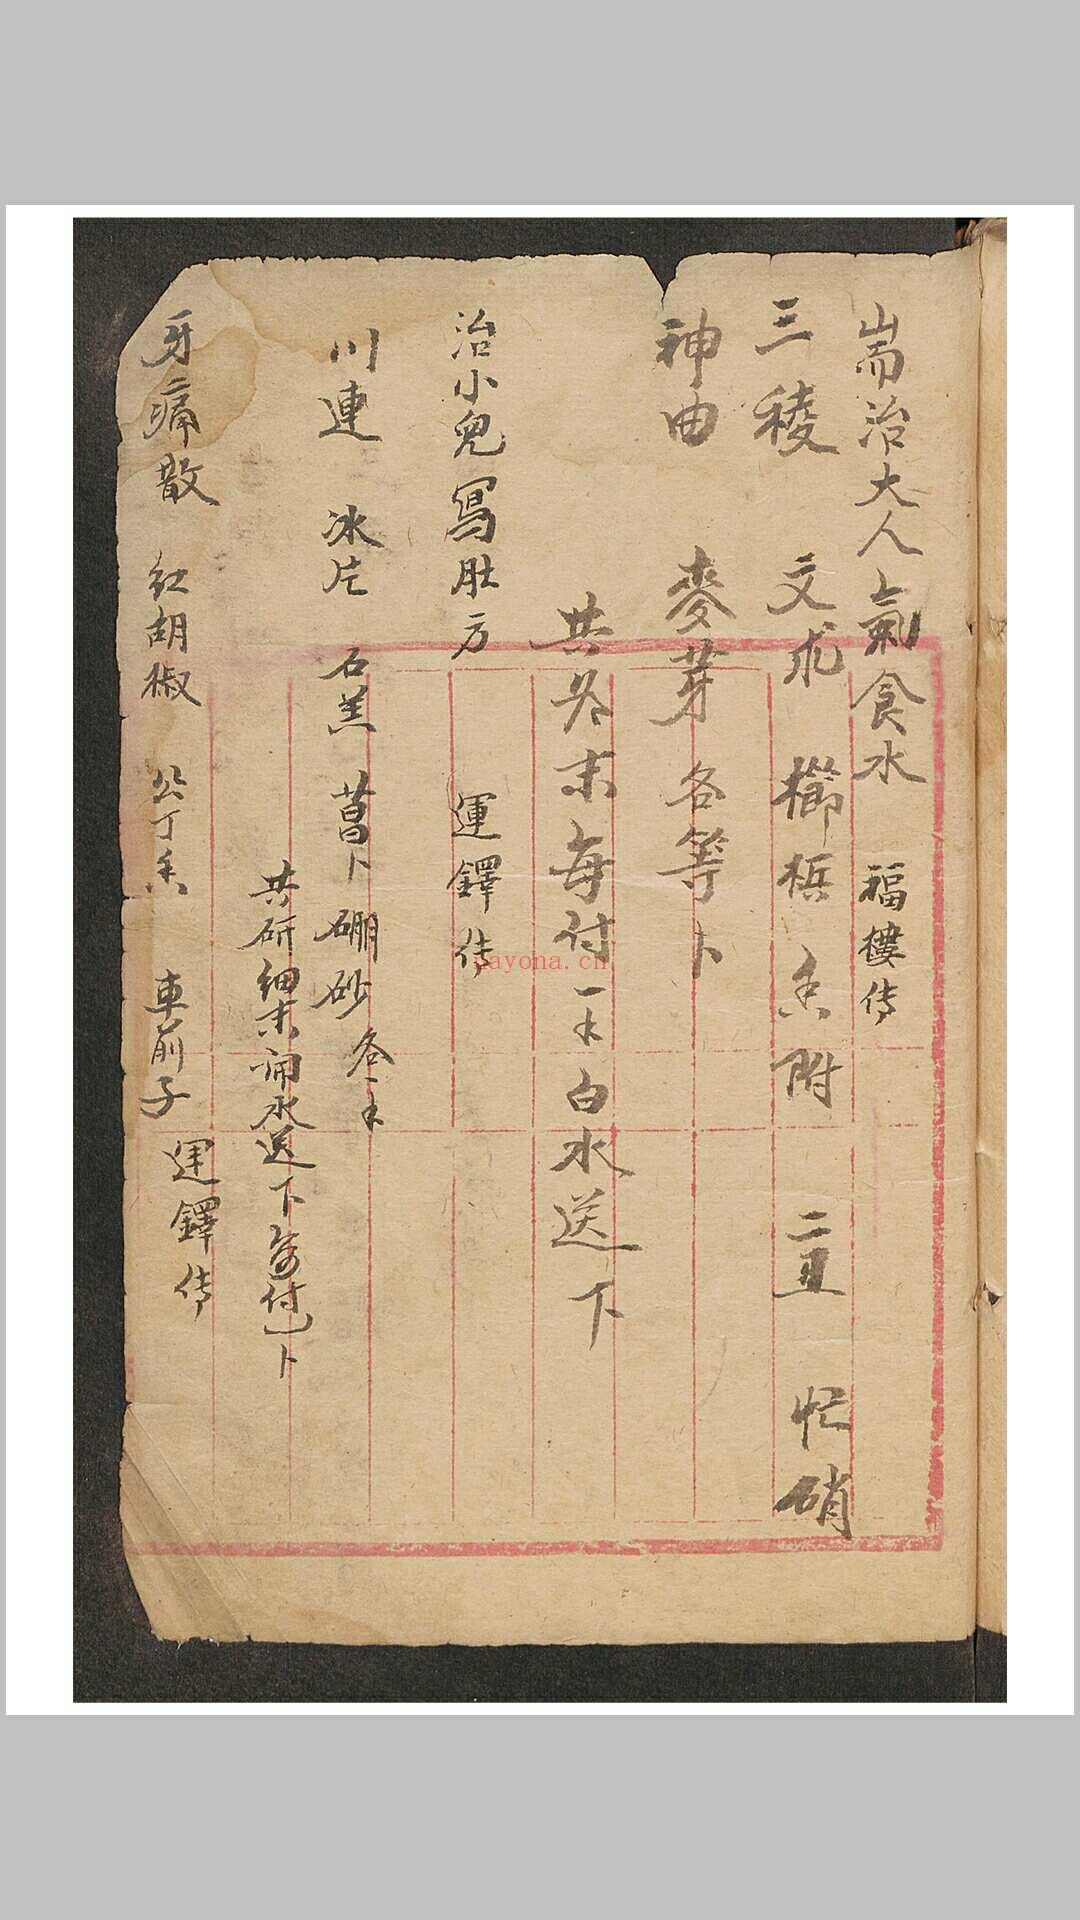 耑治大人氣食水 福樓传
三稜 文朮 櫛梹 香附 二丑 忙硝
神曲 麥芽 各等卜
共为末每付一牛白水送下
治小兒寫肚方 運鐸传
川連 冰片 石羔 菖卜 硼砂 各一牛
共研细末润水送下每付一卜
牙痛散 红胡椒 公丁香 車前子 運鐸传
nayona.cn